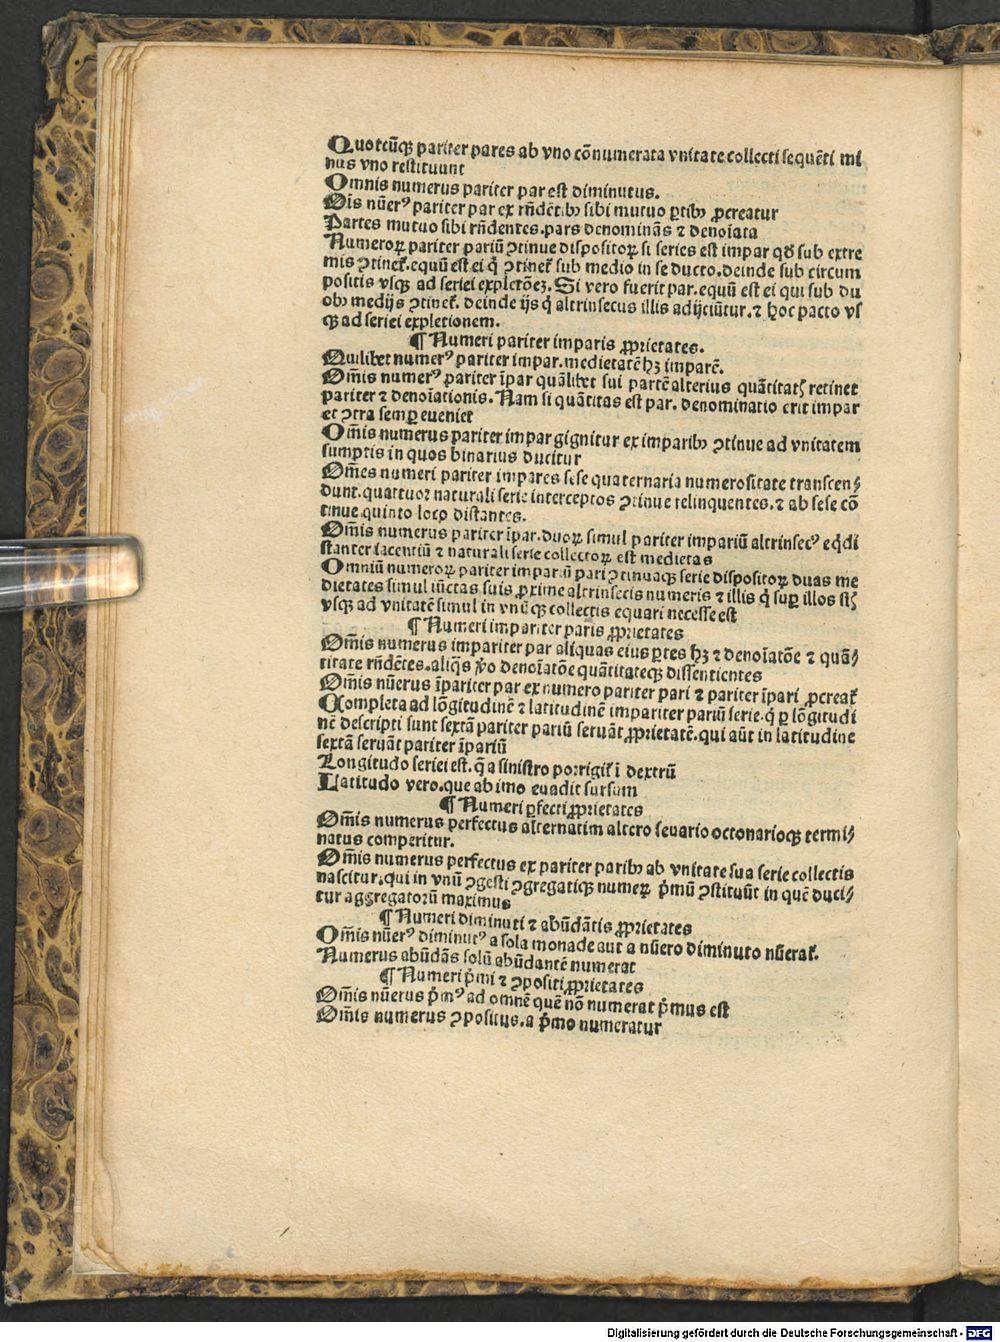 Quotcũqꝫ pariter pares ab vno cōnumerata vnitate collecti sequēti mi
nus vno restituunt
Omnis numerus pariter par est diminutus.
Ois nũerꝰ pariter par ex rñdētibꝫ sibi mutuo ꝑtibꝫ ꝓcreatur
Partes mutuo sibi rñdentes. pars denominãs ⁊ denoĩata
Numeroꝝ pariter pariũ ꝯtinue dispositoꝝ si series est impar qđ sub extre
mis ꝯtinet᷑. equũ est ei q̇ ꝯtinet᷑ sub medio in se ducto. deinde sub circum
positis vsqꝫ ad seriei expletōeꝫ. Si vero fuerit par. equũ est ei qui sub du
obꝫ medijs ꝯtinet᷑. deinde ijs q̇ altrinsecus illis adijciũtur. ⁊ hoc pacto vs
qꝫ ad seriei expletionem.
¶ Numeri pariter imparis ꝓprietates.
Quilibet numerꝰ pariter impar. medietatē hꝫ imparē.
Om̃is numerꝰ pariter ĩpar quãlibet sui partē alterius quãtitatꝭ retinet
pariter ⁊ denoĩationis. Nam si quãtitas est par. denominatio erit impar
et ꝯtra semꝑ eueniet
Om̃is numerus pariter impar gignitur ex imparibꝫ ꝯtinue ad vnitatem
sumptis in quos binarius ducitur
Om̃es numeri pariter impares sese quaternaria numerositate transcen⸗
dunt. quattuor naturali serie interceptos ꝯtinue relinquentes. ⁊ ab sese cō
tinue quinto loco distantes.
Om̃is numerus pariter ĩpar. duoꝝ simul pariter impariũ altrinsecꝰ eq̃di
stanter iacentiũ ⁊ naturali serie collectoꝝ est medietas
Omniũ numeroꝝ pariter impariũ pari ꝯtinuaqꝫ serie dispositoꝝ duas me
dietates simul iũctas suis ꝓxime altrinsecis numeris ⁊ illis q̇ suꝑ illos sũt
vsqꝫ ad vnitatē simul in vnũqꝫ collectis equari necesse est
¶ Numeri impariter paris ꝓprietates
Om̃is numerus impariter par aliquas eius ꝑtes hꝫ ⁊ denoĩatōe ⁊ quã⸗
titate rñdētes. aliq̃s ṽo denoĩatōe quãtitateqꝫ dissentientes
Om̃is nũerus ĩpariter par ex numero pariter pari ⁊ pariter ĩpari ꝓcreat᷑
Completa ad lōgitudinē ⁊ latitudinē impariter pariũ serie. q̇ ꝑ lōgitudi
nē descripti sunt sextã pariter pariũ seruãt ꝓprietatē. qui aũt in latitudine
sextã seruãt pariter ĩpariũ
Longitudo seriei est. q̃ a sinistro porrigit᷑ ĩ dextrũ
Latitudo vero. que ab imo euadit sursum
¶ Numeri ꝑfecti ꝓprietates
Om̃is numerus perfectus alternatim altero senario octonarioqꝫ termi⸗
natus comperitur.
Om̃is numerus perfectus ex pariter paribꝫ ab vnitate sua serie collectis
nascitur. qui in vnũ ꝯgesti ꝯgregatiqꝫ numeꝝ p̃mũ ꝯstituũt in quē duci⸗
tur aggregatorũ maximus
¶ Numeri diminuti ⁊ abũdãtis ꝓprietates
Om̃is nũerꝰ diminutꝰ a sola monade aut a nũero diminuto nũerat᷑.
Numerus abũdãs solũ abũdantē numerat
¶ Numeri p̃mi ⁊ ꝯpositi ꝓprietates
Om̃is nũerus p̃mꝰ ad omnē quē nō numerat p̃mus est
Om̃is numerus ꝯpositus. a p̃mo numeratur
Digitalisierung gefördert durch die Deutsche Forschungsgemeinschaft - DFG